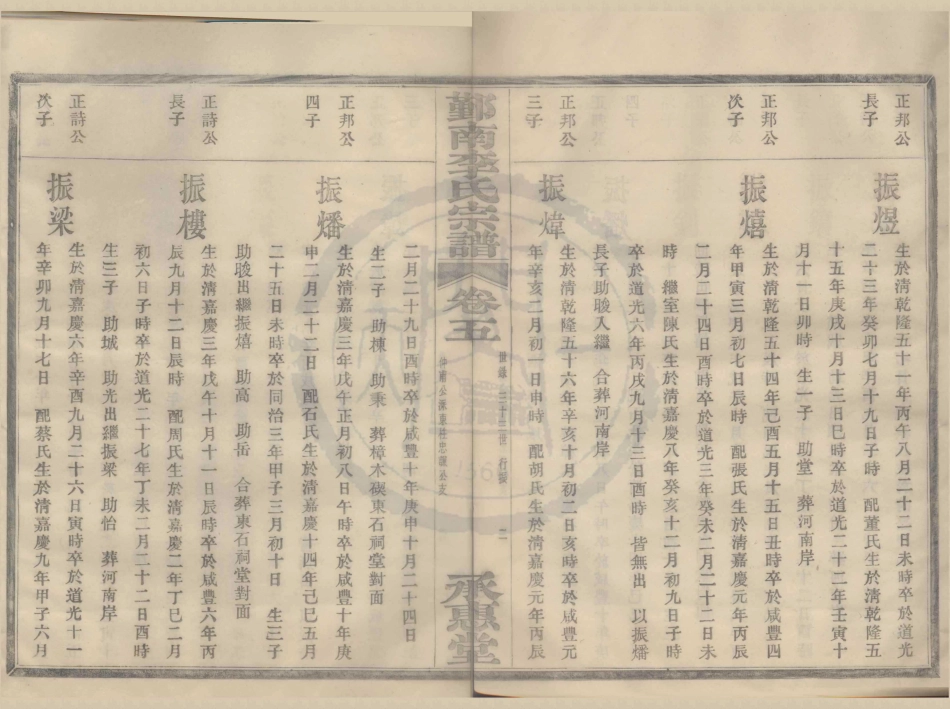 正邦公
長子
振煜
生於清乾隆五十一年丙午八月二十二日未時卒於道光
二十三年癸卯七月十九日子時 配董氏生於清乾隆五
十五年庚戌十月十三日巳時卒於道光二十二年壬寅十
月十一日卯時 生一子 助堂 葬河南岸
正邦公
次子
振熺
生於清乾隆五十四年己酉五月十五日丑時卒於咸豐四
年甲寅三月初七日辰時 配張氏生於清嘉慶元年丙辰
二月二十四日酉時卒於道光三年癸未二月二十二日未
時 繼室陳氏生於清嘉慶八年癸亥十二月初九日子時
卒於道光六年丙戌九月十三日酉時 皆無出 以振燔
長子助駿入繼 合葬河南岸
正邦公
三子
振煒
生於清乾隆五十六年辛亥十月初二日亥時卒於咸豐元
年辛亥二月初一日申時 配胡氏生於清嘉慶元年丙辰
鄞南李氏宗譜
卷五
二
承惠堂
二月二十九日酉時卒於咸豐十年庚申十月二十四日
生二子 助棟 助秉 葬樟木碶東石祠堂對面
正邦公
四子
振燔
生於清嘉慶三年戊午正月初八日午時卒於咸豐十年庚
申二月二十二日 配石氏生於清嘉慶十四年己巳五月
二十五日未時卒於同治三年甲子三月初十日 生三子
助駿出繼振熺 助高 助岳 合葬東石祠堂對面
正詩公
長子
振樓
生於清嘉慶三年戊午十月十一日辰時卒於咸豐六年丙
辰九月十二日辰時 配周氏生於清嘉慶二年丁巳二月
初六日子時卒於道光二十七年丁未二月二十二日酉時
生三子 助城 助光出繼振梁 助怡 葬河南岸
正詩公
次子
振梁
生於清嘉慶六年辛酉九月二十六日寅時卒於道光十一
年辛卯九月十七日 配蔡氏生於清嘉慶九年甲子六月